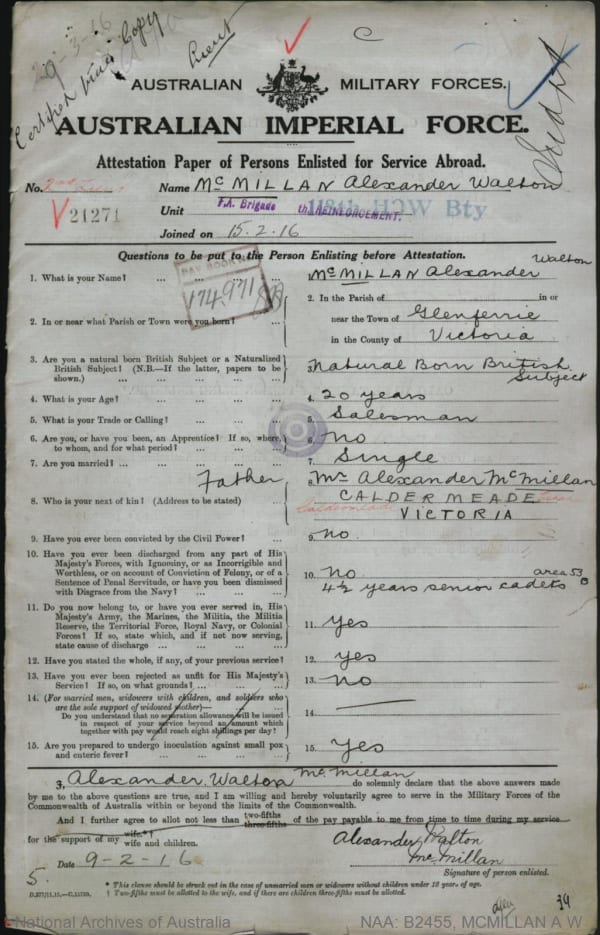 9-3-16
Certified true Copy
C
AUSTRALIAN MILITARY FORCES.
AUSTRALIAN IMPERIAL FORCE.
Attestation Paper of Persons Enlisted for Service Abroad.
No. 21271 Name McMILLAN Alexander Walton
Unit F.A. Brigade th REINFORCEMENT. HOW Bty
Joined on 15.2.16
Questions to be put to the Person Enlisting before Attestation.
1. What is your Name? ... McMILLAN Alexander Walton
PAY BOOK No.
174971
2. In or near what Parish or Town were you born? ... 2. In the Parish of in or
near the Town of Glenferrie
in the County of Victoria
3. Are you a natural born British Subject or a Naturalized
British Subject? (N.B.—If the latter, papers to be
shown.) ... 3. Natural Born British Subject
4. What is your Age? ... 4. 20 years
5. What is your Trade or Calling? ... 5. Salesman
6. Are you, or have you been, an Apprentice? If so, where,
to whom, and for what period? ... 6. No
7. Are you married? ... 7. Single
Father
8. Who is your next of kin? (Address to be stated) 8. Mr Alexander McMillan
CALDER MEADE
Caldermeade VICTORIA
9. Have you ever been convicted by the Civil Power? ... 9. No
10. Have you ever been discharged from any part of His
Majesty's Forces, with Ignominy, or as Incorrigible and
Worthless, or on account of Conviction of Felony, or of a
Sentence of Penal Servitude, or have you been dismissed
with Disgrace from the Navy? ... 10. No area 53
4½ years senior cadets
11. Do you now belong to, or have you ever served in, His
Majesty's Army, the Marines, the Militia, the Militia
Reserve, the Territorial Force, Royal Navy, or Colonial
Forces? If so, state which, and if not now serving,
state cause of discharge ... 11. Yes
12. Have you stated the whole, if any, of your previous service? 12. Yes
13. Have you ever been rejected as unfit for His Majesty's
Service? If so, on what grounds? ... 13. No
14. (For married men, widowers with children, and soldiers who
are the sole support of widowed mother)—
Do you understand that no separation allowance will be issued
in respect of your service beyond an amount which
together with pay would reach eight shillings per day? 14.
15. Are you prepared to undergo inoculation against small pox
and enteric fever? ... 15. Yes
I, Alexander Walton McMillan do solemnly declare that the above answers made
by me to the above questions are true, and I am willing and hereby voluntarily agree to serve in the Military Forces of the
Commonwealth of Australia within or beyond the limits of the Commonwealth.
And I further agree to allot not less than two-fifths three-fifths of the pay payable to me from time to time during my service
for the support of my wife.*† wife and children.
Alexander Walton
McMillan
Date 9-2-16 Signature of person enlisted.
5.
* This clause should be struck out in the case of unmarried men or widowers without children under 18 years of age.
† Two-fifths must be allotted to the wife, and if there are children three-fifths must be allotted.
39
National Archives of Australia NAA: B2455, MCMILLAN A W